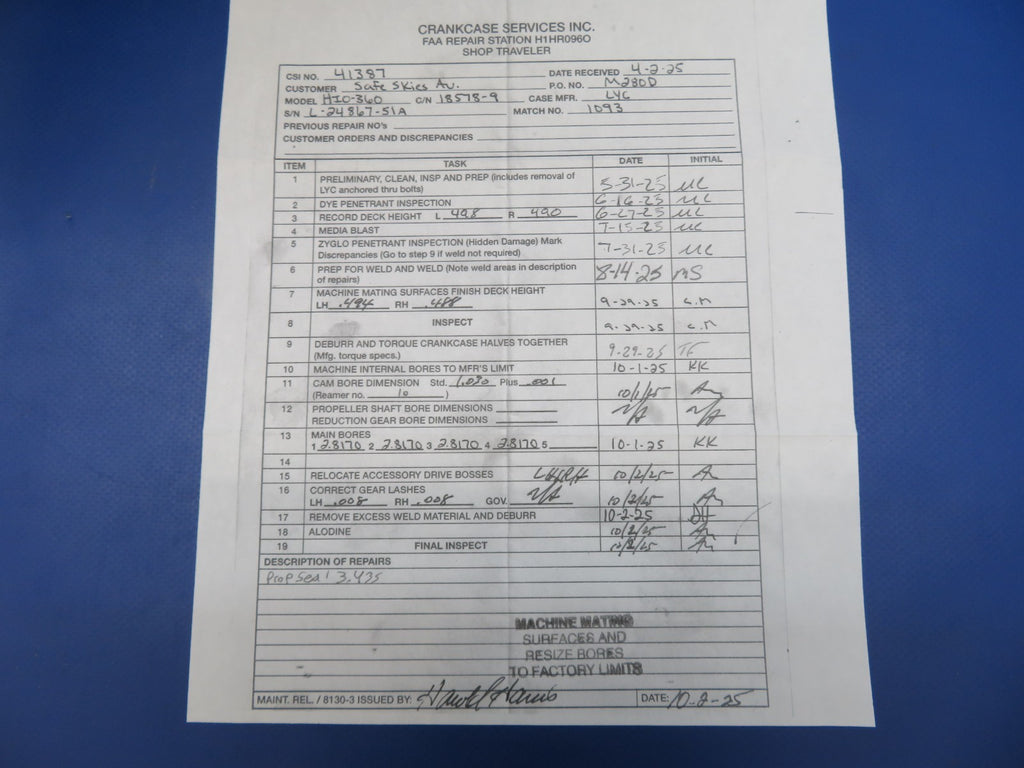 CRANKCASE SERVICES INC.
FAA REPAIR STATION H1HR096O
SHOP TRAVELER
CSI NO. 41387 DATE RECEIVED 4-2-25
CUSTOMER Safe Skies Av. P.O. NO. M280D
MODEL HIO-360 C/N 18578-9 CASE MFR. LYC
S/N L-24867-51A MATCH NO. 1093
PREVIOUS REPAIR NO's
CUSTOMER ORDERS AND DISCREPANCIES
ITEM TASK DATE INITIAL
1 PRELIMINARY, CLEAN, INSP AND PREP (includes removal of
LYC anchored thru bolts) 5-31-25
2 DYE PENETRANT INSPECTION 6-16-25
3 RECORD DECK HEIGHT L .498 R .490 6-27-25
4 MEDIA BLAST 7-15-25
5 ZYGLO PENETRANT INSPECTION (Hidden Damage) Mark
Discrepancies (Go to step 9 if weld not required) 7-31-25
6 PREP FOR WELD AND WELD (Note weld areas in description
of repairs) 8-14-25 MS
7 MACHINE MATING SURFACES FINISH DECK HEIGHT
LH .494 RH .488 9-29-25
8 INSPECT 9-29-25
9 DEBURR AND TORQUE CRANKCASE HALVES TOGETHER
(Mfg. torque specs.) 9-29-25 TF
10 MACHINE INTERNAL BORES TO MFR'S LIMIT 10-1-25 KK
11 CAM BORE DIMENSION Std. 1.030 Plus .001
(Reamer no. 10 ) 10/1/25
12 PROPELLER SHAFT BORE DIMENSIONS N/A N/A
REDUCTION GEAR BORE DIMENSIONS
13 MAIN BORES
1 2.8170 2 2.8170 3 2.8170 4 2.8170 5 10-1-25 KK
14
15 RELOCATE ACCESSORY DRIVE BOSSES LH/RH 10/2/25
16 CORRECT GEAR LASHES
LH .008 RH .008 GOV. N/A 10/2/25
17 REMOVE EXCESS WELD MATERIAL AND DEBURR 10-2-25
18 ALODINE 10/2/25
19 FINAL INSPECT 10/2/25
DESCRIPTION OF REPAIRS
Prop Seal 3.435
MACHINE MATING
SURFACES AND
RESIZE BORES
TO FACTORY LIMITS
MAINT. REL. / 8130-3 ISSUED BY: Harold Harris DATE: 10-2-25